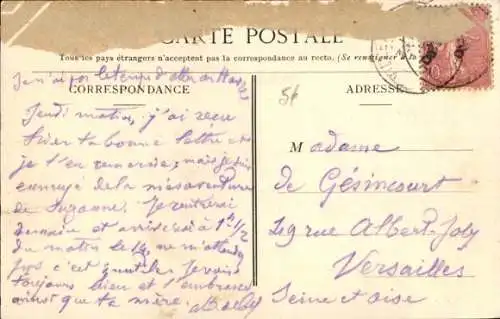 CARTE POSTALE
Tous les pays étrangers n'acceptent pas la correspondance au recto. (Se renseigner
CORRESPONDANCE
ADRESSE
Je n'ai pas le temps d'aller en
Jeudi matin, j'ai reçu
hier ta bonne lettre et
je t'en remercie; mais je suis
ennuyé de la mésaventure
de Suzanne. Je rentrerai
demain et arriverai à 1h 1/2
du matin le 14, ne m'attends
pas c'est inutile. Je vais
toujours bien et t'embrasse
ainsi que ta mère.
5f
Madame
de Gésincourt
49 rue Albert-Joly
Versailles
Seine et Oise